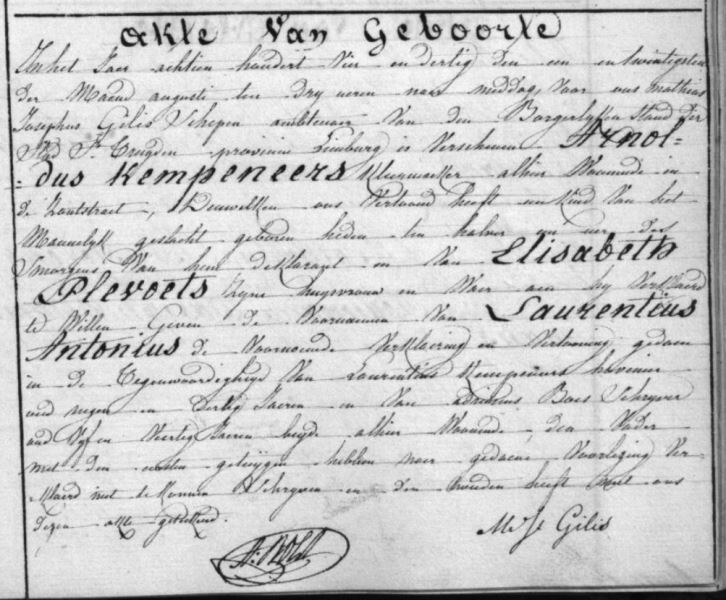 Akte Van Geboorte
In het Jaer achtien hondert Vier en dertig den een en twintigsten
der Maend augusti ten dry uren naer middag, Voor ons mathias
Josephus Gilis Schepen ambtenaer Van den Borgerlyken Stand der
Stad St. Truyden provincie Limburg is Verschenen Arnol-
-dus Kempeneers alhier Woonende in
de Zoutstraet, Denwelken ons Vertoond heeft een kind Van het
Mannelyk geslacht geboren heden ten halver uer des
Smorgens Van hem deklarant en Van Elisabeth
Plevoets Zyne huysvrouw en Waer aen hy Verklaerd
te Willen Geven de Voornamen Van Laurentius
Antonius de Voornoemde Verklaering en Vertooning gedaen
in de Tegenwoordigheyd Van Laurentius Kempeneers hovenier
oud negen en Dertig Jaeren en Van Baes Schryver
oud Vyf en Veertig Jaeren beyde alhier Woonende, den Vader
met den eersten getuygen hebben naer gedaene Voorlezing Ver-
klaerd niet te konnen Schryven en den tweeden heeft met ons
dezen akte geteekend.
Ms Js Gilis